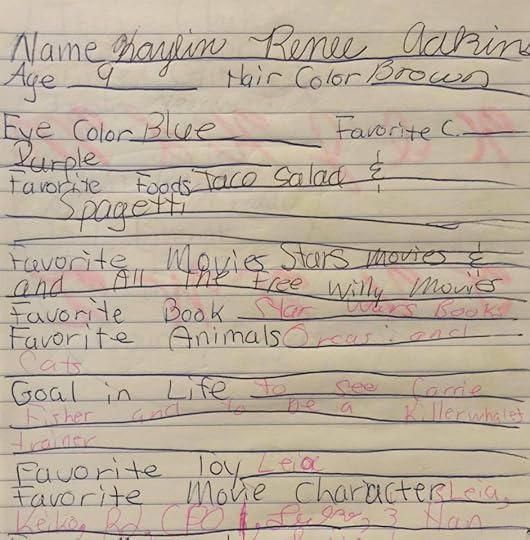 Name Kaylin Renee Aakins
Age 9 Hair Color Brown
Eye Color Blue Favorite C.
Purple
Favorite Foods Taco Salad &
Spagetti
Favorite Movies Stars movies &
and All the free willy Movies
Favorite Book Star Wars Books
Favorite Animals Orcas and
Cats
Goal in Life to see Carrie
Fisher and to be a Killerwhales
trainer
Favorite Toy Leia
Favorite Movie Characters Leia,
Keiko, Rd, CPO, Luke, & Han